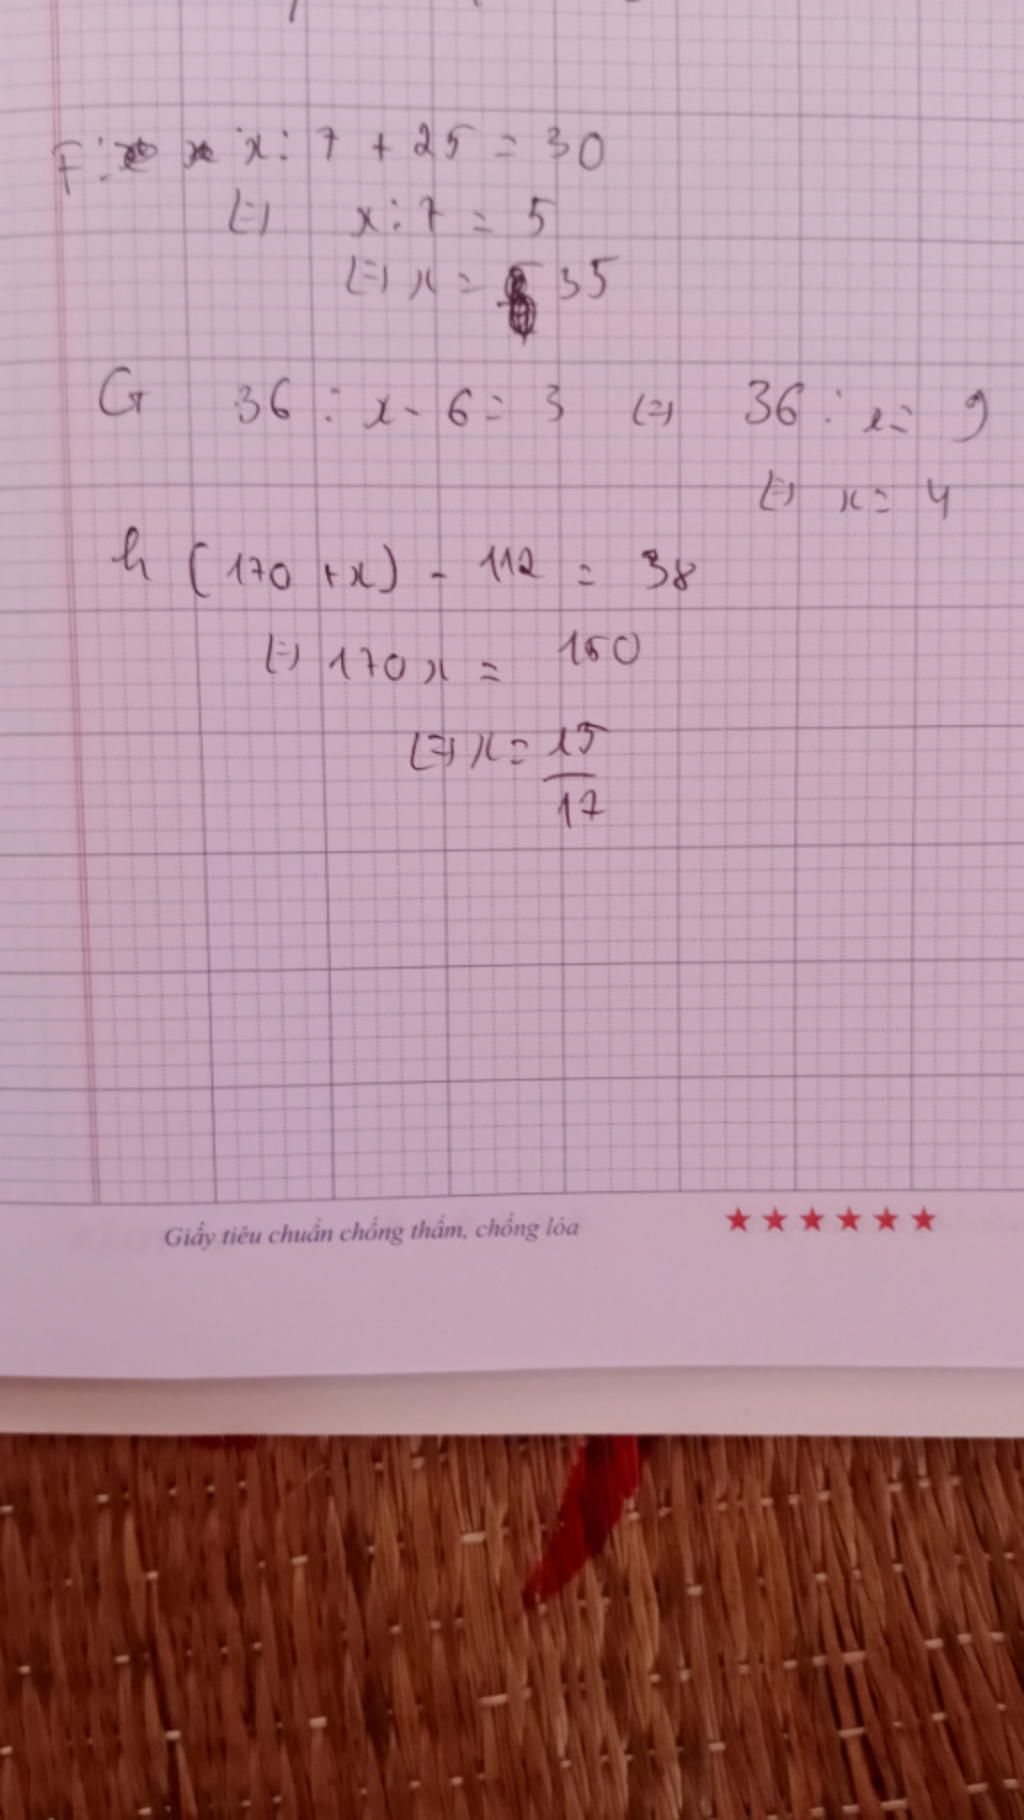 F: x : 7 + 25 = 30
(=) x : 7 = 5
(=) x = 35
G 36 : x - 6 = 3 (=) 36 : x = 9
(=) x = 4
h (170 + x) - 112 = 38
(=) 170 x = 150
(=) x = 15
17
Giấy tiêu chuẩn chống thấm, chống lóa